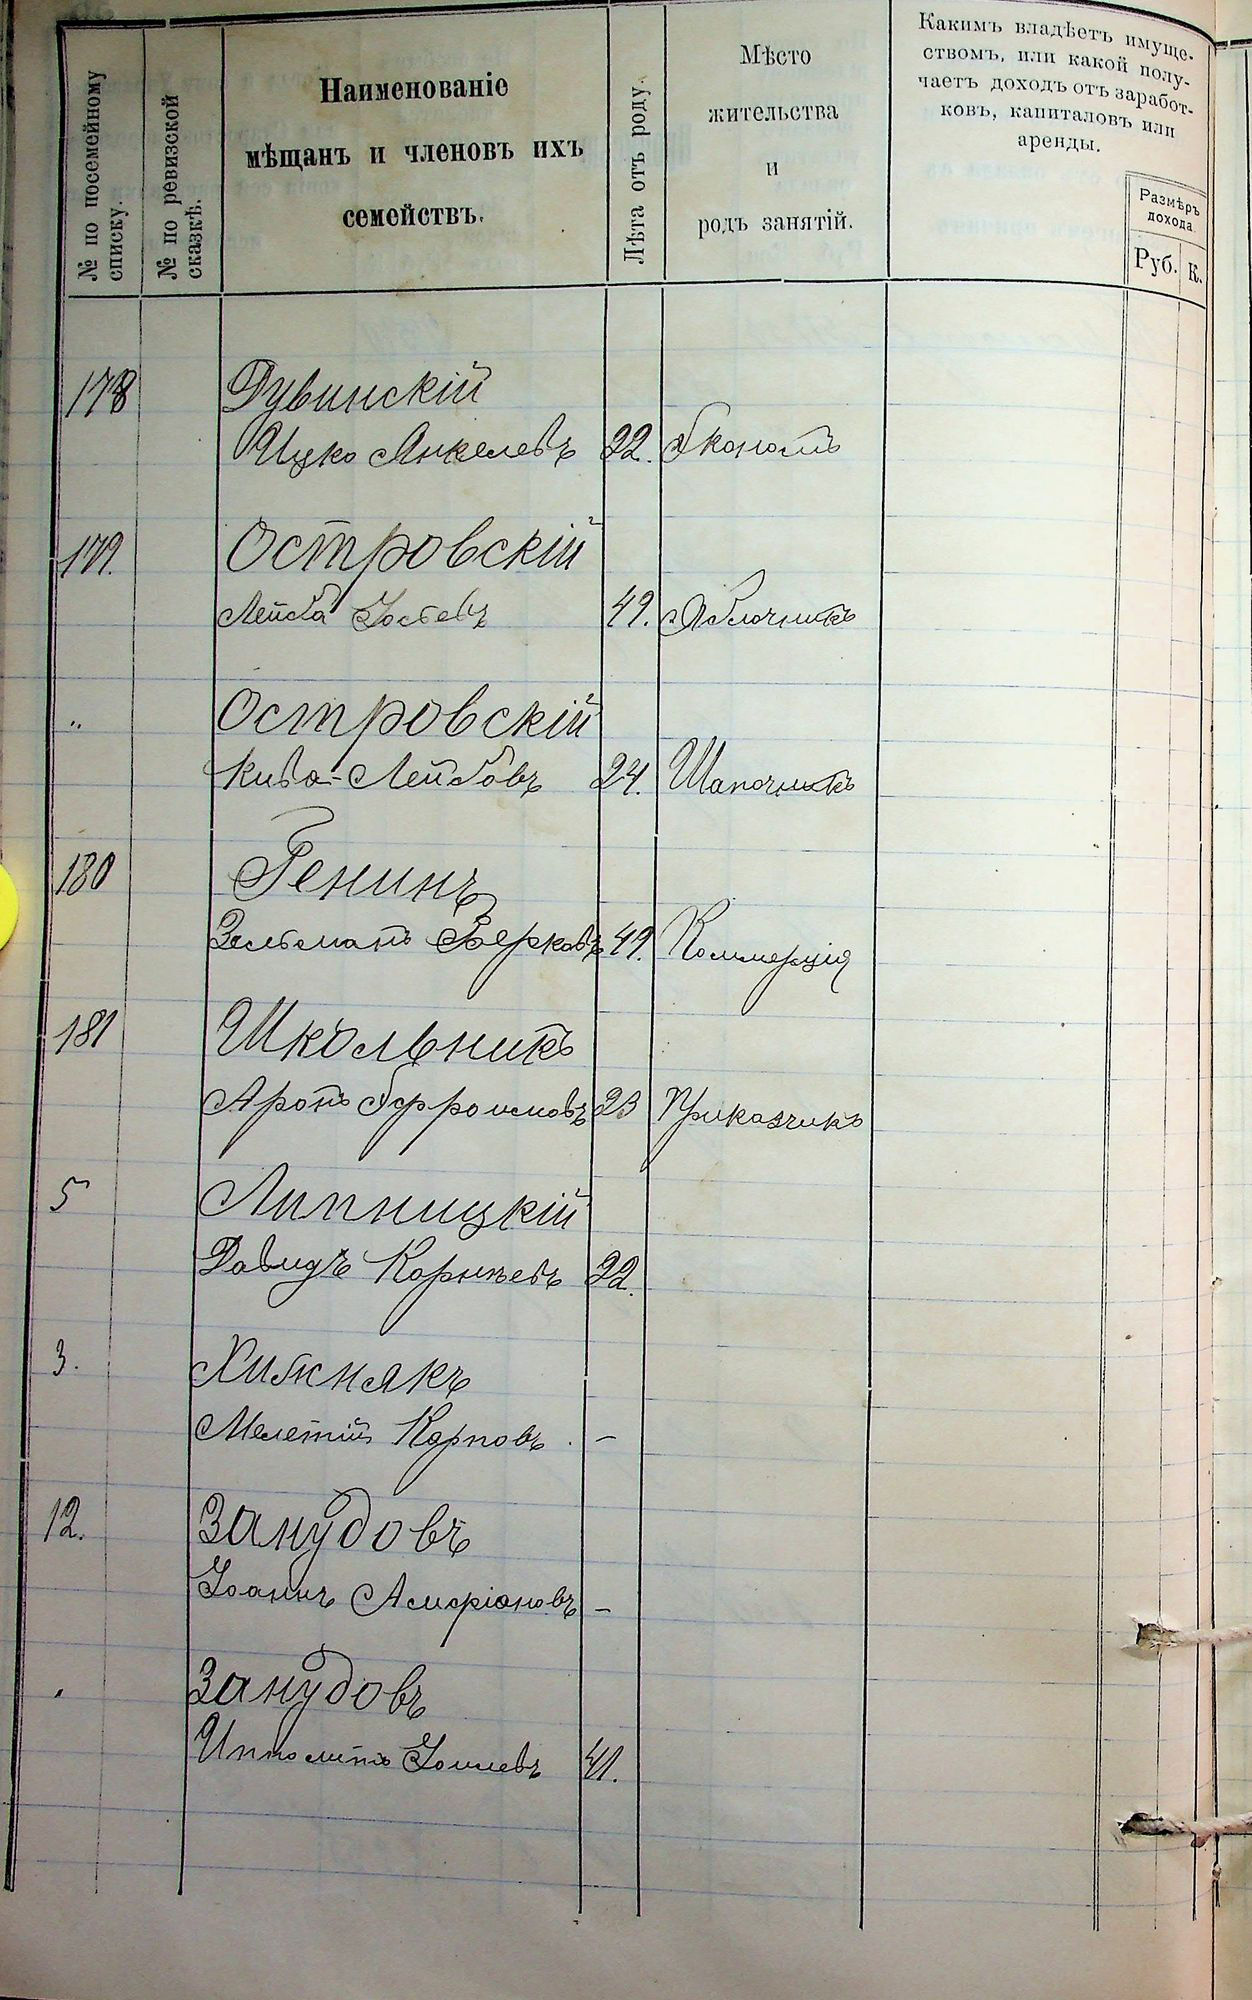 № по посемейному
списку.
№ по ревизской
сказкѣ.
Наименованіе
мѣщанъ и членовъ ихъ
семействъ.
Лѣта отъ роду.
Мѣсто
жительства
и
родъ занятій.
Какимъ владѣетъ имуще-
ствомъ, или какой полу-
чаетъ доходъ отъ заработ-
ковъ, капиталовъ или
аренды.
Размѣръ
дохода
Руб. К.
178 Дувинскій
Ицко Янкелевъ 22. Экономъ
179. Островскій
Лейба Іосевъ 49. Яблочникъ
" Островскій
Кива-Лейбовъ 24. Шапочникъ
180 Генинъ
Зельманъ Берковъ 49. Коммерція
181 Школьникъ
Аронъ Эфроимовъ 23 Приказчикъ
5 Липницкій
Давидъ Корнѣевъ 22.
3. Хижнякъ
Мелетій Карповъ. -
12. Занудовъ
Іоаннъ Амфіановъ -
" Занудовъ
Ипполитъ Іоилевъ 41.